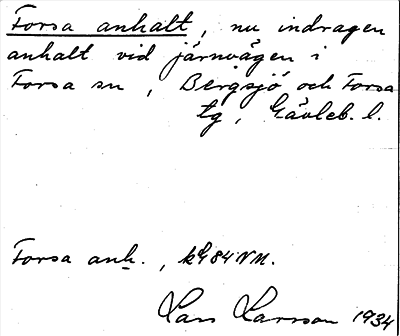 Forsa anhalt, nu indragen
anhalt vid järnvägen i
Forsa sn, Bergsjö och Forsa
tg, Gävleb. l.
Forsa anh., 84 NM.
Lars Larsson 1934